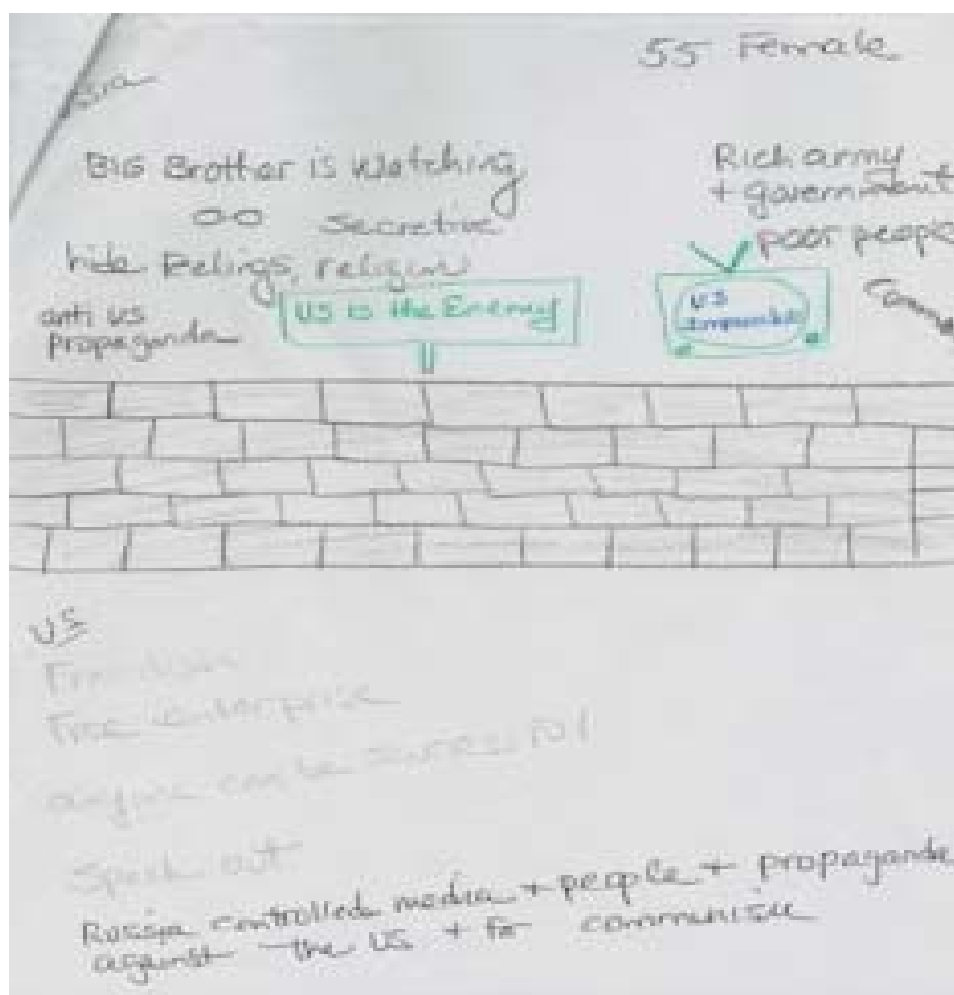 55 Female
BIG Brother is Watching
Secretive
hide Felings, religion
anti US
propaganda
US is the Enemy
Rich army
+ government
poor people
US
US
Free enterprise
anyone can be successful
Speak out
Russia controlled media + people + propaganda
against the US + for communism